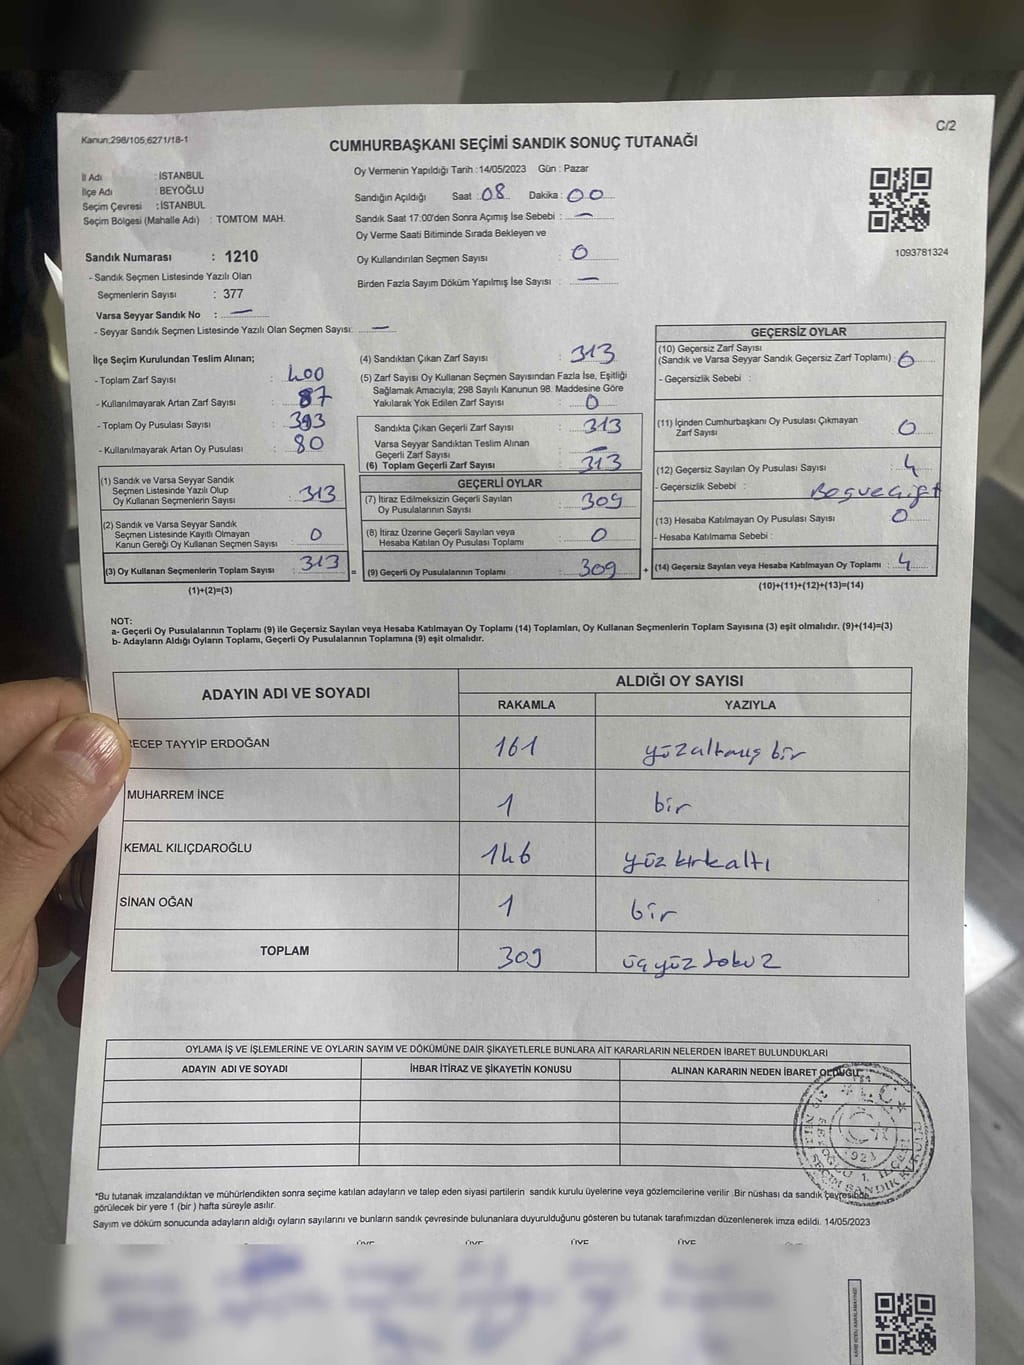 Kanun:298/105,6271/18-1
C/2
CUMHURBAŞKANI SEÇİMİ SANDIK SONUÇ TUTANAĞI
İl Adı : İSTANBUL
İlçe Adı : BEYOĞLU
Seçim Çevresi : İSTANBUL
Seçim Bölgesi (Mahalle Adı) : TOMTOM MAH.
Sandık Numarası : 1210
- Sandık Seçmen Listesinde Yazılı Olan
Seçmenlerin Sayısı : 377
Varsa Seyyar Sandık No : —
- Seyyar Sandık Seçmen Listesinde Yazılı Olan Seçmen Sayısı: —
Oy Vermenin Yapıldığı Tarih : 14/05/2023 Gün : Pazar
Sandığın Açıldığı Saat : 08 Dakika : 00
Sandık Saat 17:00'den Sonra Açımış İse Sebebi : —
Oy Verme Saati Bitiminde Sırada Bekleyen ve
Oy Kullandırılan Seçmen Sayısı : 0
Birden Fazla Sayım Döküm Yapılmış İse Sayısı : —
1093781324
İlçe Seçim Kurulundan Teslim Alınan;
- Toplam Zarf Sayısı : 400
- Kullanılmayarak Artan Zarf Sayısı : 87
- Toplam Oy Pusulası Sayısı : 393
- Kullanılmayarak Artan Oy Pusulası : 80
(1) Sandık ve Varsa Seyyar Sandık
Seçmen Listesinde Yazılı Olup
Oy Kullanan Seçmenlerin Sayısı : 313
(2) Sandık ve Varsa Seyyar Sandık
Seçmen Listesinde Kayıtlı Olmayan
Kanun Gereği Oy Kullanan Seçmen Sayısı : 0
(3) Oy Kullanan Seçmenlerin Toplam Sayısı : 313
(1)+(2)=(3)
(4) Sandıktan Çıkan Zarf Sayısı : 313
(5) Zarf Sayısı Oy Kullanan Seçmen Sayısından Fazla İse, Eşitliği
Sağlamak Amacıyla; 298 Sayılı Kanunun 98. Maddesine Göre
Yakılarak Yok Edilen Zarf Sayısı : 0
Sandıkta Çıkan Geçerli Zarf Sayısı : 313
Varsa Seyyar Sandıktan Teslim Alınan
Geçerli Zarf Sayısı : —
(6) Toplam Geçerli Zarf Sayısı : 313
GEÇERLİ OYLAR
(7) İtiraz Edilmeksizin Geçerli Sayılan
Oy Pusulalarının Sayısı : 309
(8) İtiraz Üzerine Geçerli Sayılan veya
Hesaba Katılan Oy Pusulası Toplamı : 0
= (9) Geçerli Oy Pusulalarının Toplamı : 309
GEÇERSİZ OYLAR
(10) Geçersiz Zarf Sayısı
(Sandık ve Varsa Seyyar Sandık Geçersiz Zarf Toplamı) : 0
- Geçersizlik Sebebi :
(11) İçinden Cumhurbaşkanı Oy Pusulası Çıkmayan
Zarf Sayısı : 0
(12) Geçersiz Sayılan Oy Pusulası Sayısı : 4
- Geçersizlik Sebebi : Boş ve Çift
(13) Hesaba Katılmayan Oy Pusulası Sayısı : 0
- Hesaba Katılmama Sebebi :
+ (14) Geçersiz Sayılan veya Hesaba Katılmayan Oy Toplamı : 4
(10)+(11)+(12)+(13)=(14)
NOT:
a- Geçerli Oy Pusulalarının Toplamı (9) ile Geçersiz Sayılan veya Hesaba Katılmayan Oy Toplamı (14) Toplamları, Oy Kullanan Seçmenlerin Toplam Sayısına (3) eşit olmalıdır. (9)+(14)=(3)
b- Adayların Aldığı Oyların Toplamı, Geçerli Oy Pusulalarının Toplamına (9) eşit olmalıdır.
ADAYIN ADI VE SOYADI
ALDIĞI OY SAYISI
RAKAMLA YAZIYLA
RECEP TAYYİP ERDOĞAN 161 yüzaltmış bir
MUHARREM İNCE 1 bir
KEMAL KILIÇDAROĞLU 146 yüz kırkaltı
SİNAN OĞAN 1 bir
TOPLAM 309 üçyüz dokuz
OYLAMA İŞ VE İŞLEMLERİNE VE OYLARIN SAYIM VE DÖKÜMÜNE DAİR ŞİKAYETLERLE BUNLARA AİT KARARLARIN NELERDEN İBARET BULUNDUKLARI
ADAYIN ADI VE SOYADI İHBAR İTİRAZ VE ŞİKAYETİN KONUSU ALINAN KARARIN NEDEN İBARET OLDUĞU
*Bu tutanak imzalandıktan ve mühürlendikten sonra seçime katılan adayların ve talep eden siyasi partilerin sandık kurulu üyelerine veya gözlemcilerine verilir. Bir nüshası da sandık çevresinde
görülecek bir yere 1 (bir ) hafta süreyle asılır.
Sayım ve döküm sonucunda adayların aldığı oyların sayılarını ve bunların sandık çevresinde bulunanlara duyurulduğunu gösteren bu tutanak tarafımızdan düzenlenerek imza edildi. 14/05/2023
ÜYE ÜYE ÜYE ÜYE
T.C.
1923